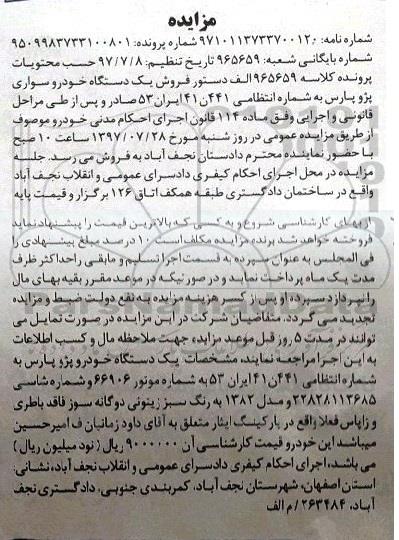 مزایده
شماره نامه: ۹۷۱۰۱۱۳۷۳۳۷۰۰۱۲۰ شماره پرونده: ۹۵۰۹۹۸۳۷۳۳۱۰۰۸۰۱
شماره بایگانی شعبه: ۹۶۵۶۵۹ تاریخ تنظیم: ۹۷/۷/۸ حسب محتویات
پرونده کلاسه ۹۶۵۶۵۹ الف دستور فروش یک دستگاه خودرو سواری
پژو پارس به شماره انتظامی ۴۴۱ن۴۱ ایران ۵۳ صادر و پس از طی مراحل
قانونی و اجرایی وفق ماده ۱۱۴ قانون اجرای احکام مدنی خودرو موصوف
از طریق مزایده عمومی در روز شنبه مورخ ۱۳۹۷/۰۷/۲۸ ساعت ۱۰ صبح
با حضور نماینده محترم دادستان نجف آباد به فروش می رسد. جلسه
مزایده در محل اجرای احکام کیفری دادسرای عمومی و انقلاب نجف آباد
واقع در ساختمان دادگستری طبقه همکف اتاق ۱۲۶ برگزار و قیمت پایه
از بهای کارشناسی شروع و به کسی که بالاترین قیمت را پیشنهاد نماید
فروخته خواهد شد برنده مزایده مکلف است ۱۰ درصد مبلغ پیشنهادی را
فی المجلس به عنوان سپرده به قسمت اجرا تسلیم و مابقی را حداکثر ظرف
مدت یک ماه پرداخت نماید و در صورتیکه در موعد مقرر بقیه بهای مال
را نپردازد سپرده او پس از کسر هزینه مزایده به نفع دولت ضبط و مزایده
تجدید می گردد. متقاضیان شرکت در این مزایده در صورت تمایل می
توانند در مدت ۵ روز قبل موعد مزایده، جهت ملاحظه مال و کسب اطلاعات
به این اجرا مراجعه نمایند، مشخصات یک دستگاه خودرو پژو پارس به
شماره انتظامی ۴۴۱ن۴۱ ایران ۵۳ به شماره موتور ۶۶۹۰۶ و شماره شاسی
۲۲۸۲۸۱۱۳۶۸۵ و مدل ۱۳۸۲ به رنگ سبز زیتونی دوگانه سوز فاقد باطری
و زاپاس فعلا واقع در پارکینگ ایثار متعلق به آقای داود زمانیان ف امیرحسین
میباشد این خودرو قیمت کارشناسی آن ۹۰۰۰۰۰۰۰ ریال (نود میلیون ریال)
می باشد، اجرای احکام کیفری دادسرای عمومی و انقلاب نجف آباد، نشانی:
استان اصفهان، شهرستان نجف آباد، کمربندی جنوبی، دادگستری نجف
آباد، ۲۶۳۴۸۴/م الف